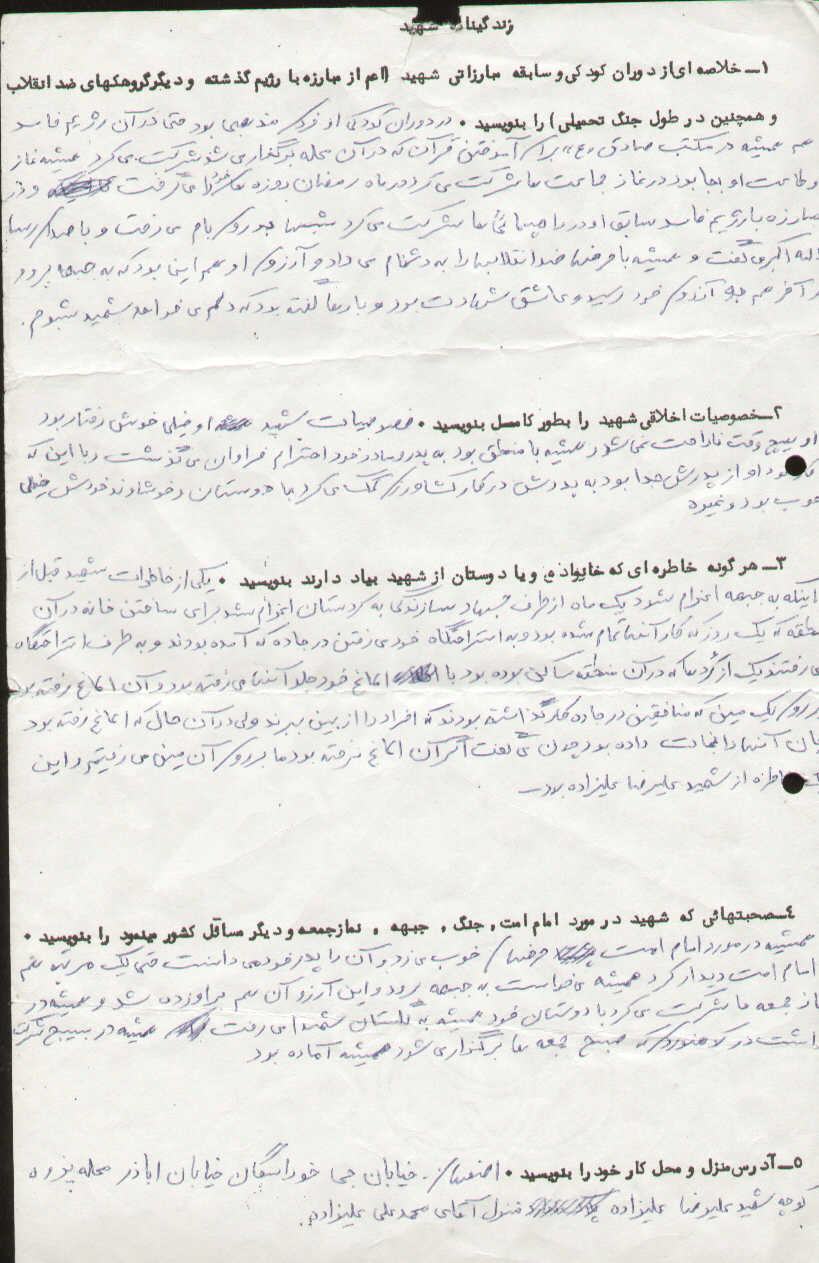 زندگینامه شهید
۱ــ خلاصه ای از دوران کودکی و سابقه مبارزاتی شهید (اعم از مبارزه با رژیم گذشته و دیگر گروهکهای ضد انقلاب
و همچنین در طول جنگ تحمیلی) را بنویسید • در دوران کودکی او فردی مذهبی بود حتی در آن رژیم فاسد
هم همیشه در مکتب صادق (ع) برای آموختن قرآن که در آن محله برگذار می شود شرکت می کرد همیشه نماز
و طاعت او بجا بود در نماز جماعت ها شرکت می کرد در ماه رمضان روزه ها را می گرفت و در
مبارزه با رژیم فاسد سابق او در راهپیمائی ها شرکت می کرد شبها بر روی بام می رفت و با صدای رسا
الله اکبر می گفت و همیشه با حرفها ضد انقلابها را به دشنام می داد و آرزوی او هم این بود که به جبهه برود
در آخر هم به آرزوی خود رسید و عاشق شهادت بود و بارها گفته بود که دلم می خواهد شهید شوم.
۲ــ خصوصیات اخلاقی شهید را بطور کامل بنویسید • خصوصیات شهید او خیلی خوش رفتار بود
او هیچ وقت ناراحت نمی شود همیشه با منطق بود به پدر و مادر خود احترام فراوان می گذشت و با این که
او از پدرش جدا بود به پدرش در کار کشاورزی کمک می کرد با دوستان و خوشاوند خودش خیلی
خوب بود و غیره
۳ــ هر گونه خاطره ای که خانواده و یا دوستان از شهید بیاد دارند بنویسید • یکی از خاطرات شهید قبل از
اینکه به جبهه اعزام شود یک ماه از طرف جهاد سازندگی به کردستان اعزام شد برای ساختن خانه در آن
منطقه که یک روز که کار آنها تمام شده بود و به استراحتگاه خود می رفتن در جاده که آمده بودند و به طرف استراحتگاه
می رفتند یک از کُردها که در آن منطقه ساکن بوده بود با الاغ خود جلو آنها می رفته بود و آن الاغ رفته بود
بر روی یک مین که منافقین در جاده کار گذاشته بودند که افراد را از بین ببرند ولی در آن حال که الاغ رفته بود
جان آنها را نجات داده بود چون می گفت اگر آن الاغ نرفته بود ما بر روی آن مین می رفتیم و این
خاطره از شهید علیرضا علیزاده بود ــ
۴ــ صحبتهائی که شهید در مورد امام امت ، جنگ ، جبهه ، نماز جمعه و دیگر مسائل کشور مینمود را بنویسید •
همیشه در مورد امام امت حرفهای خوب می زد و آن را پدر خود می دانست حتی یک مرتبه هم
امام امت دیدار کرد همیشه می خواست به جبهه برود و این آرزو آن هم برآورده شد و همیشه در
نماز جمعه ها شرکت می کرد با دوستان خود همیشه به گلستان شهدا می رفت همیشه در بسیج شرکت
داشت در که صبح جمعه ها برگذاری شود همیشه آماده بود
۵ــ آدرس منزل و محل کار خود را بنویسید • اصفهان . خیابان جی خوراسگان خیابان اباذر محله پزوه
کوچه شهید علیرضا علیزاده منزل آقای محمد علی علیزاده.